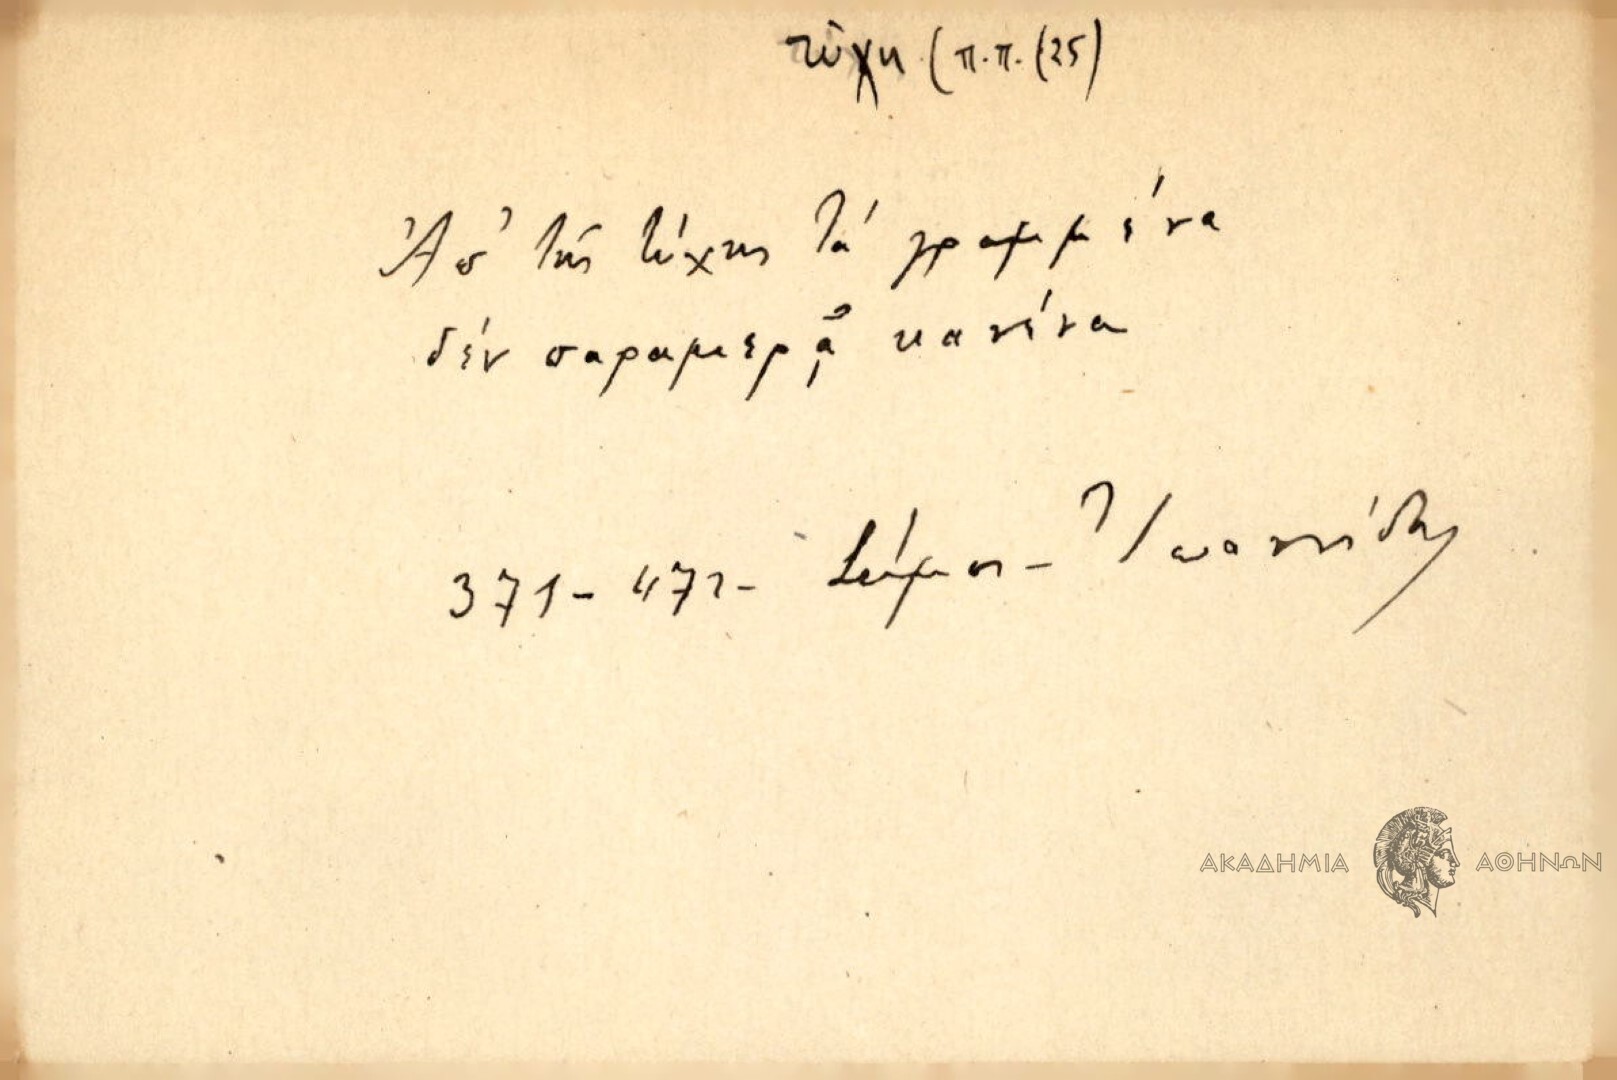 τύχη (π.π. (25)
Ἀπ' τῆς τύχης τά γραμμένα
δέν παραμερᾷ κανένα
371 - 471 - Σύμη - Ἰωαννίδης
ΑΚΑΔΗΜΙΑ ΑΘΗΝΩΝ